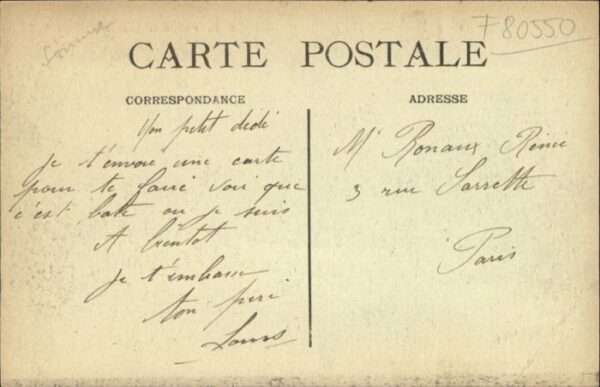 Somme
780550
CARTE POSTALE
CORRESPONDANCE
ADRESSE
Mon petit dédé
Je t'envoie une carte
pour te faire voir que
c'est bate ou je suis
A bientôt
Je t'embasse
ton pere
Louis
Mr Ronaux René
3 rue Sarrette
Paris